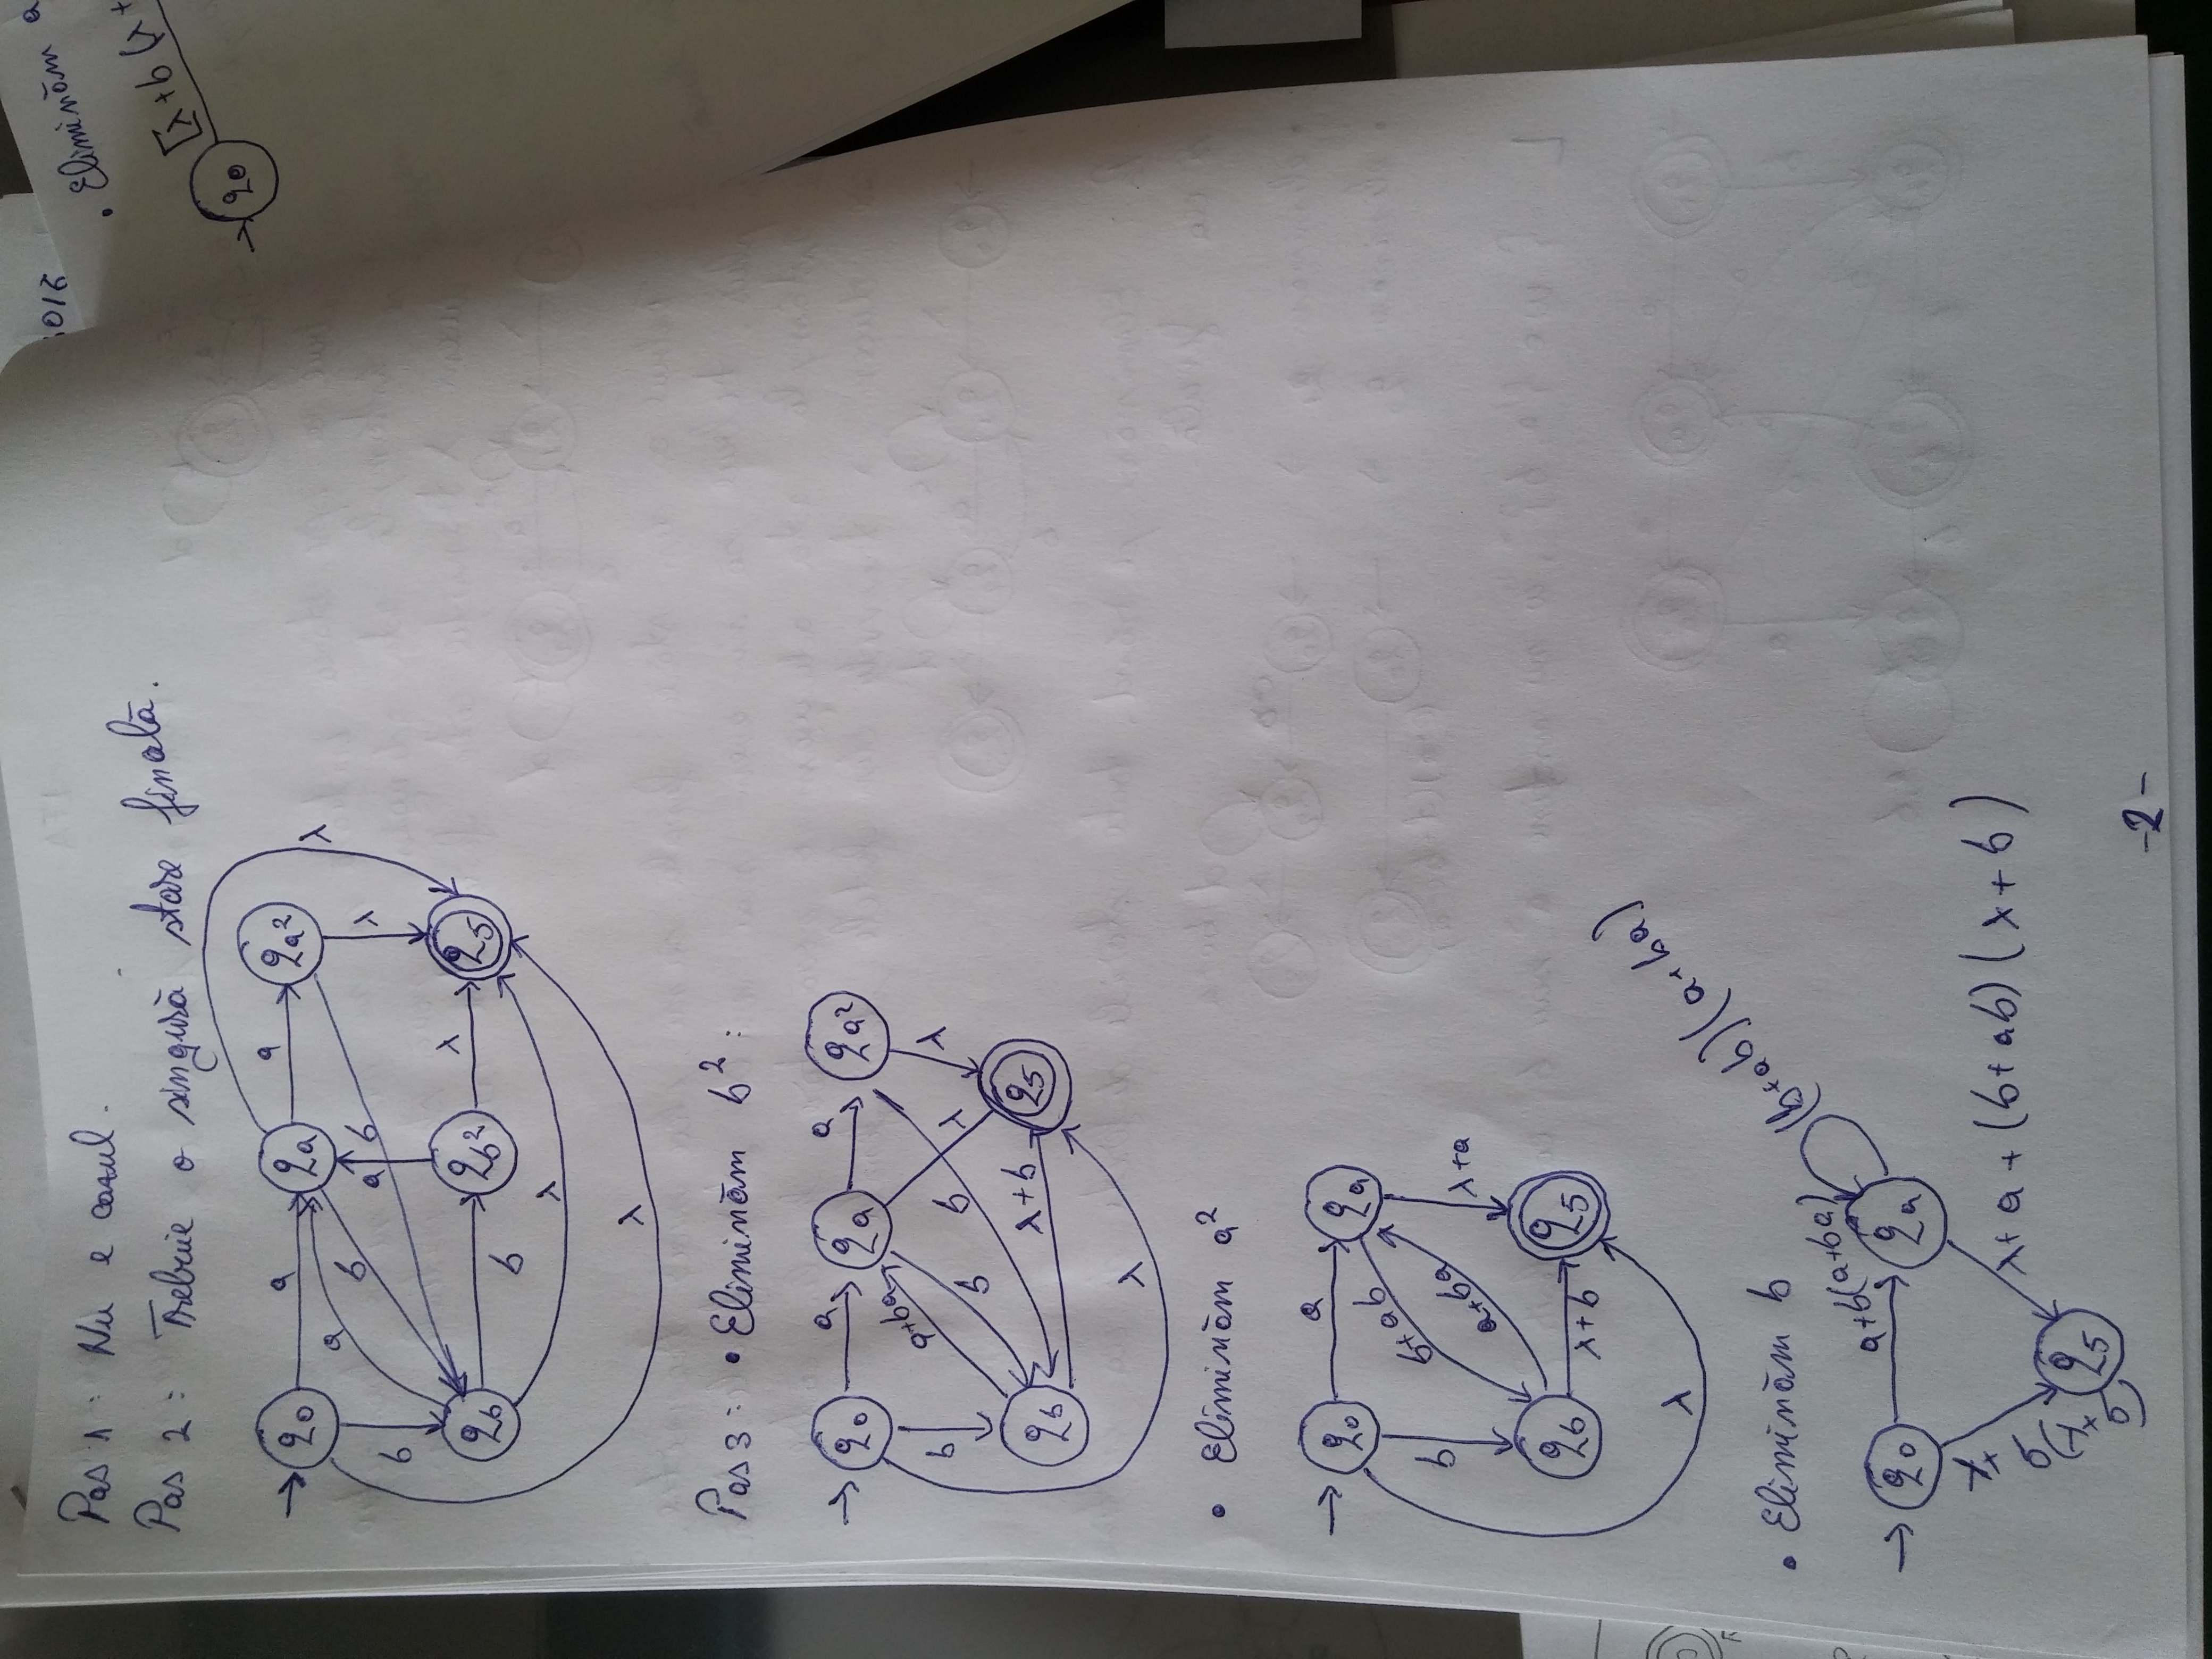 Pas 1 : Nu e cazul.
Pas 2 : Trebuie o singură stare finală.
q0 a qa a qa² λ
a b a b λ
b
qb b qb² λ q5
λ
λ
Pas 3 : • Eliminăm b² :
q0 a qa a qa²
b a+ba b b λ λ
qb λ+b q5
λ
• Eliminăm a²
q0 a qa
b b+ab a+ba λ+a
qb λ+b q5
λ
• Eliminăm b
(b+ab)(a+ba)
q0 a+b(a+ba) qa
λ+b(λ+b) λ+a+(b+ab)(λ+b)
q5
-2-
• Eliminăm a
[λ+b(λ+
q0